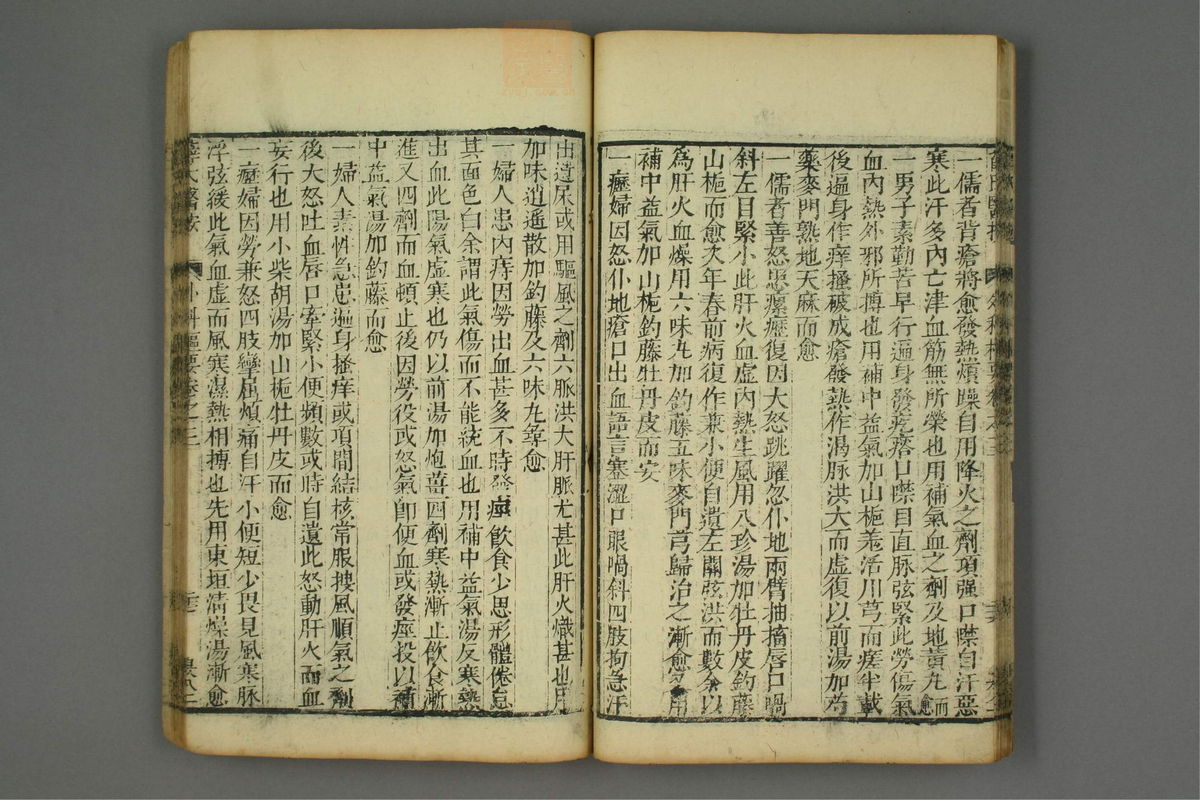 一儒者背瘡將愈發熱煩躁自用降火之劑項强口噤自汗惡
寒此汗多內亡津血筋無所榮也用補氣血之劑及地黃丸而愈
一男子素勤苦早行遍身發疙瘩口噤目直脉弦緊此勞傷氣
血內熱外邪所搏也用補中益氣加山梔羗活川芎而瘥半載
後遍身作痒搔破成瘡發熱作渴脉洪大而虚復以前湯加芍
藥麥門熟地天麻而愈
一儒者善怒患瘰癧復因大怒跳躍忽仆地兩臂抽搐唇口喎
斜左目緊小此肝火血虛內熱生風用八珍湯加牡丹皮鈎藤
山梔而愈次年春前病復作兼小便自遺左關弦洪而數余以
爲肝火血燥用六味丸加鈎藤五味麥門芎歸治之漸愈用
補中益氣加山梔鈎藤牡丹皮而安
一瘰婦因怒仆地瘡口出血語言蹇澀口眼喎斜四肢拘急汗
出遺尿或用驅風之劑六脉洪大肝脈尤甚此肝火熾甚也用
加味逍遙散加鈎藤及六味丸尋愈
一婦人患內痔因勞出血甚多不時發痙飲食少思形體倦怠
其面色白余謂此氣傷而不能統血也用補中益氣湯反寒熱
出血此陽氣虛寒也仍以前湯加炮薑四劑寒熱漸止飲食漸
進又四劑而血頓止後因勞役或怒氣卽便血或發痙投以補
中益氣湯加鈎藤而愈
一婦人素性急患遍身搔痒或項間結核常服搜風順氣之劑
後大怒吐血唇口牽緊小便頻數或時自遺此怒動肝火而血
妄行也用小柴胡湯加山梔牡丹皮而愈
一瘰婦因勞兼怒四肢攣屈煩痛自汗小便短少畏見風寒脉
浮弦緩此氣血虛而風寒濕熱相搏也先用東垣清燥湯漸愈